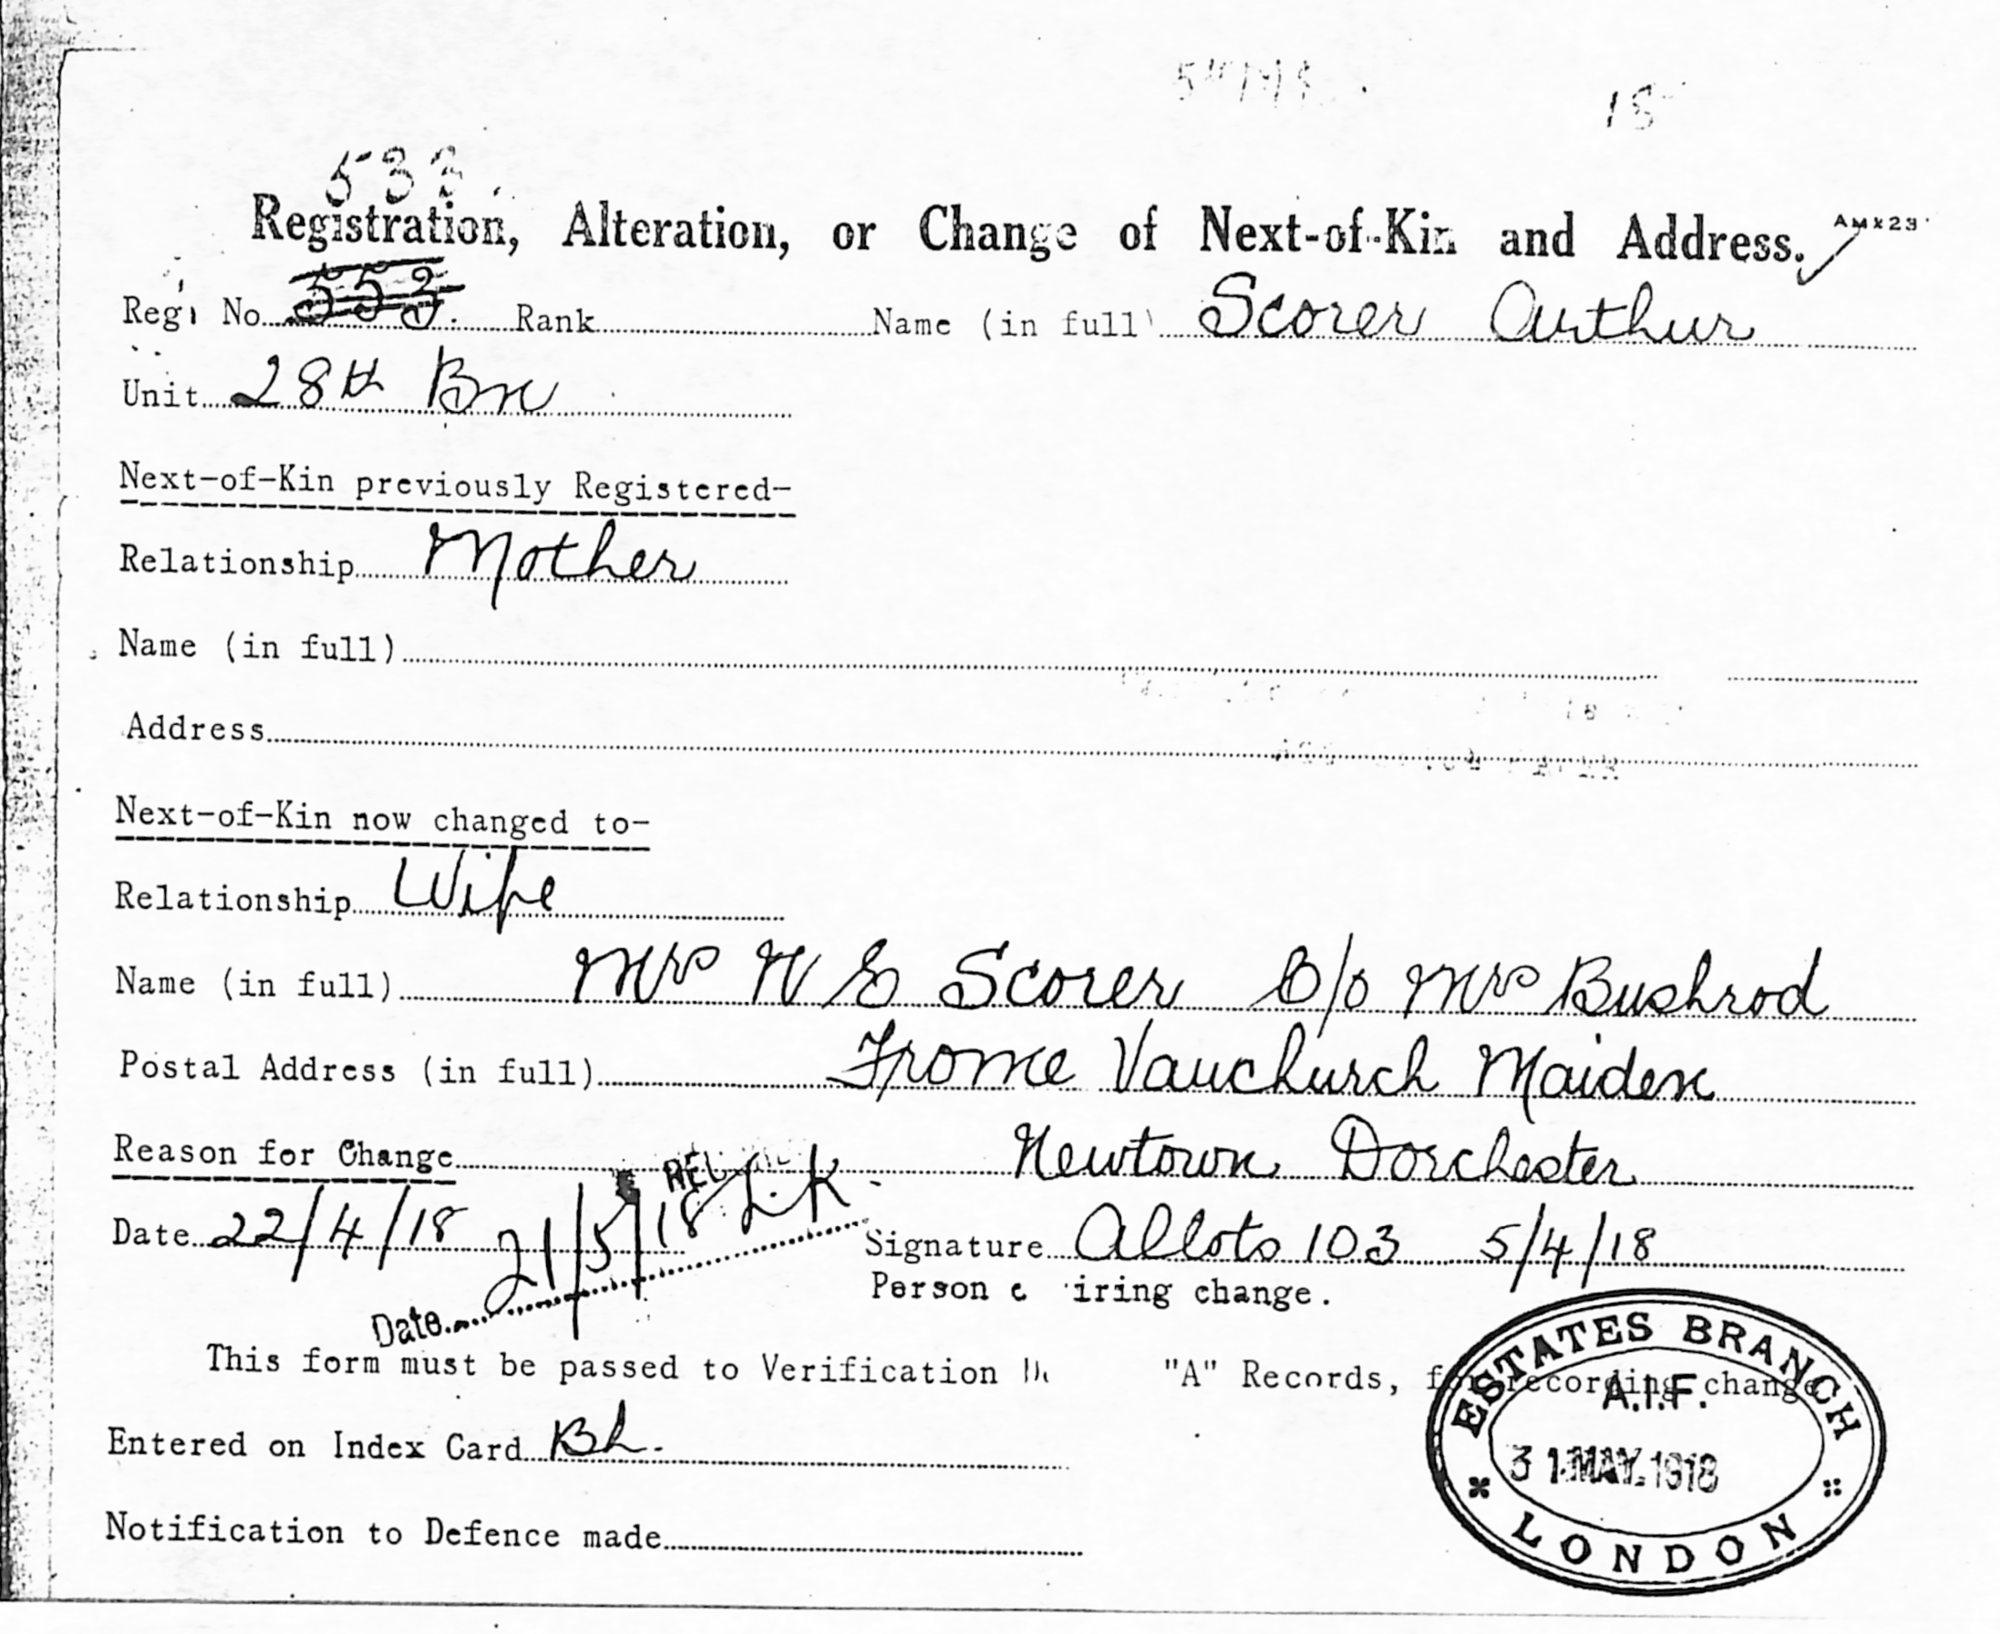 18
533
Registration, Alteration, or Change of Next-of-Kin and Address. AMX23
Regi No 553. Rank Name (in full) Scorer Arthur
Unit 28th Bn
Next-of-Kin previously Registered-
Relationship Mother
Name (in full)
Address
Next-of-Kin now changed to-
Relationship Wife
Name (in full) Mrs W E Scorer C/o Mrs Bushrod
Postal Address (in full) Frome Vauchurch Maiden
Reason for Change Newtown Dorchester
Date 22/4/18 Signature Allots 103 5/4/18
Date 21/5/18 L.K.
Person iring change.
This form must be passed to Verification "A" Records, for recording change
Entered on Index Card BL.
Notification to Defence made
ESTATES BRANCH
A.I.F.
31 MAY 1918
LONDON